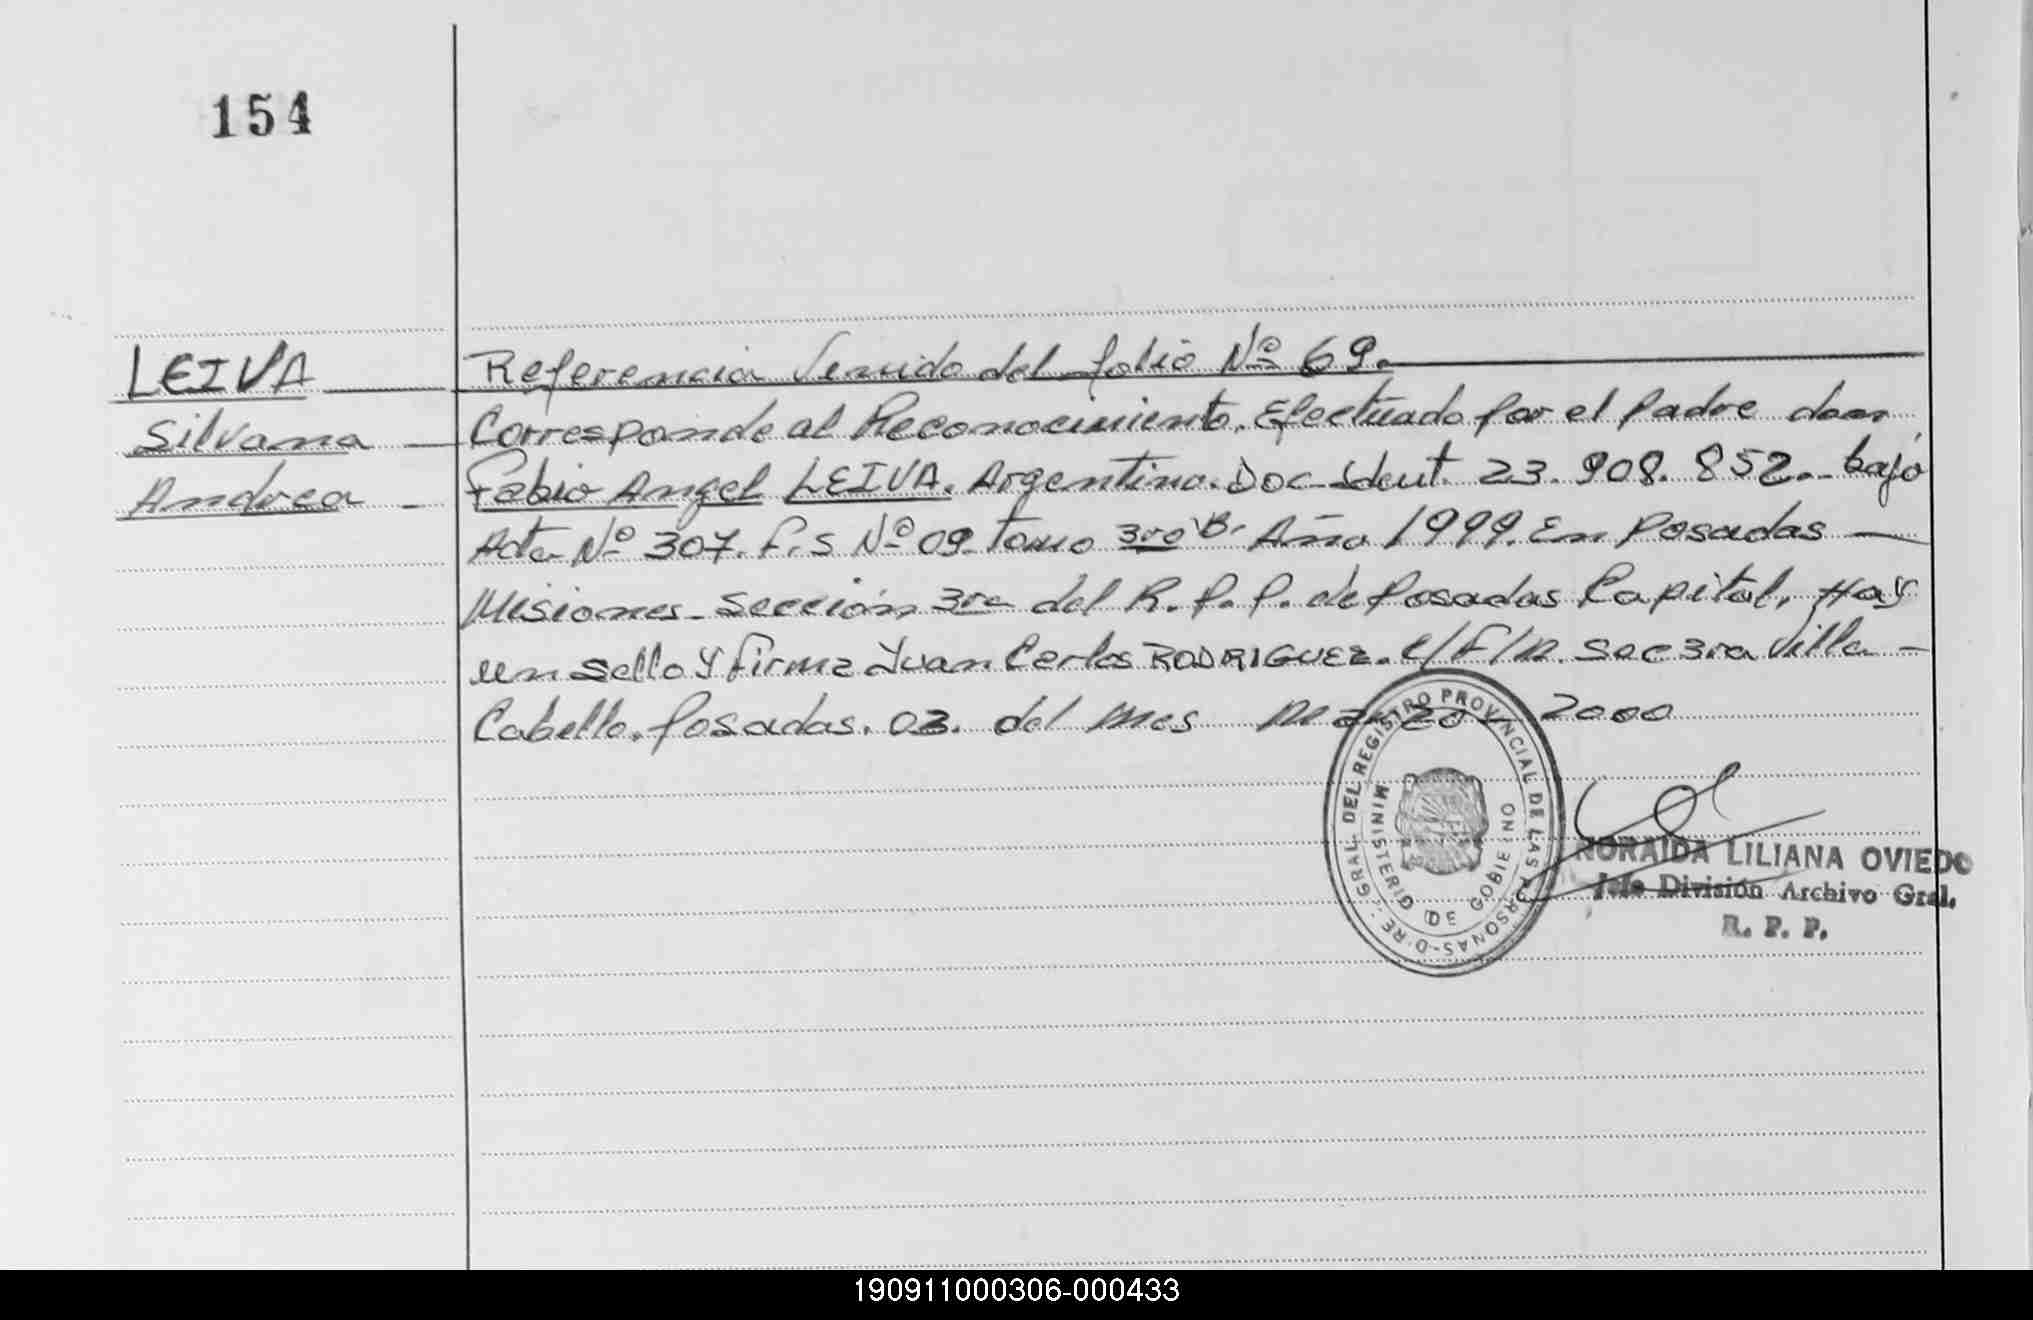 154
LEIVA
Silvana
Andrea
Referencia Venido del folio Nº 69.
Corresponde al Reconocimiento. Efectuado por el Padre don
Fabio Angel LEIVA. Argentino. Doc. Ident. 23.908.852.- bajo
Acta Nº 307. F.s Nº 09. Tomo 3ro "B" Año 1999. En Posadas —
Misiones. Sección 3ra del R.P.P. de Posadas Capital. Hay
un sello y firma Juan Carlos RODRIGUEZ. E/F/R. Sec 3ra Villa —
Cabello. Posadas. 03. del Mes Marzo - 2000
REGISTRO PROVINCIAL DE LAS PERSONAS
MINISTERIO DE GOBIERNO
NORAIDA LILIANA OVIEDO
Jefe División Archivo Gral.
R. P. P.
190911000306-000433